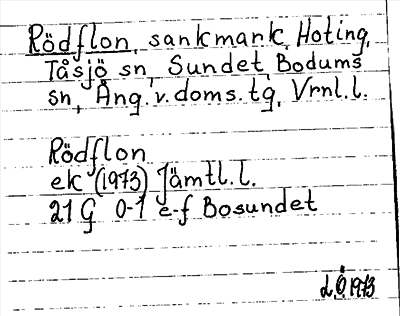 Rödflon, sankmark, Hoting,
Tåsjö sn, Sundet, Bodums
sn, Ång. v. doms. tg, Vrnl. l.
Rödflon
ek (1973) Jämtl. l.
21 G 0-1 e-f Bosundet
L.Ö 1973